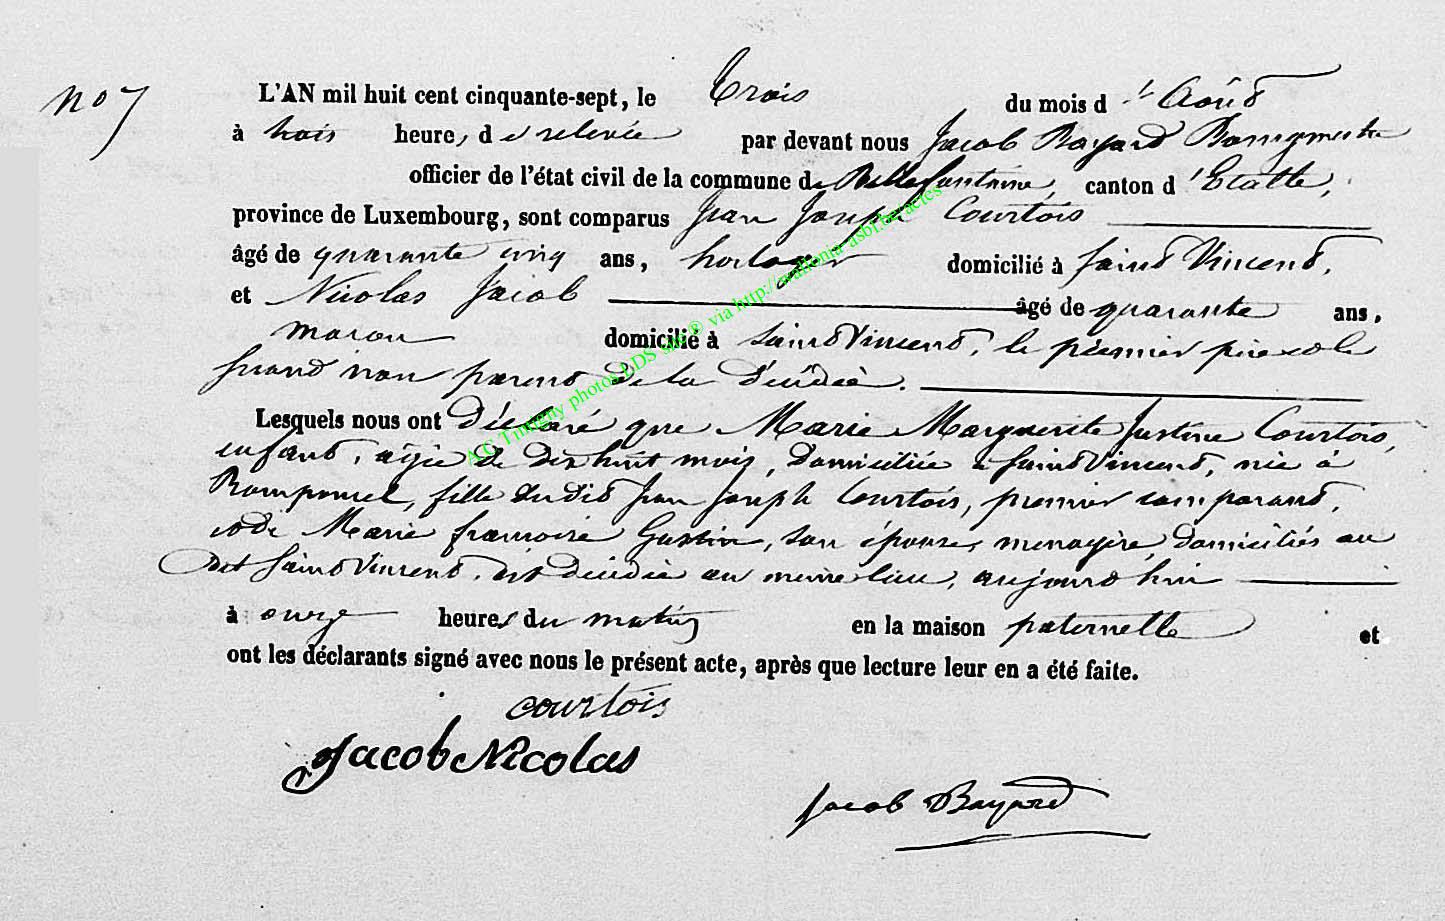 no 7
L'AN mil huit cent cinquante-sept, le trois du mois d'Août
à trois heures de relevée par devant nous Jacob Bayard Bourgmestre
officier de l'état civil de la commune de Bellefontaine, canton d'Etalle,
province de Luxembourg, sont comparus Jean Joseph Courtois
âgé de quarante cinq ans, horloger domicilié à Saint Vincent,
et Nicolas Jacob âgé de quarante ans,
maçon domicilié à Saint Vincent, le premier père et le
second non parent de la décédée.
Lesquels nous ont déclaré que Marie Marguerite Justine Courtois,
enfant, agée de dix huit mois, domiciliée à Saint Vincent, née à
fille du dit Jean Joseph Courtois, premier comparant,
et de Marie françoise Gustin, son épouse, menagère, domiciliés au
dit Saint Vincent, est décédée au même lieu, aujourd'hui
à onze heures du matin en la maison paternelle et
ont les déclarants signé avec nous le présent acte, après que lecture leur en a été faite.
courtois
Jacob Nicolas
Jacob Bayard
A.G. Timigny photos LDS site ® via http://wallonia-asbl.be/actes